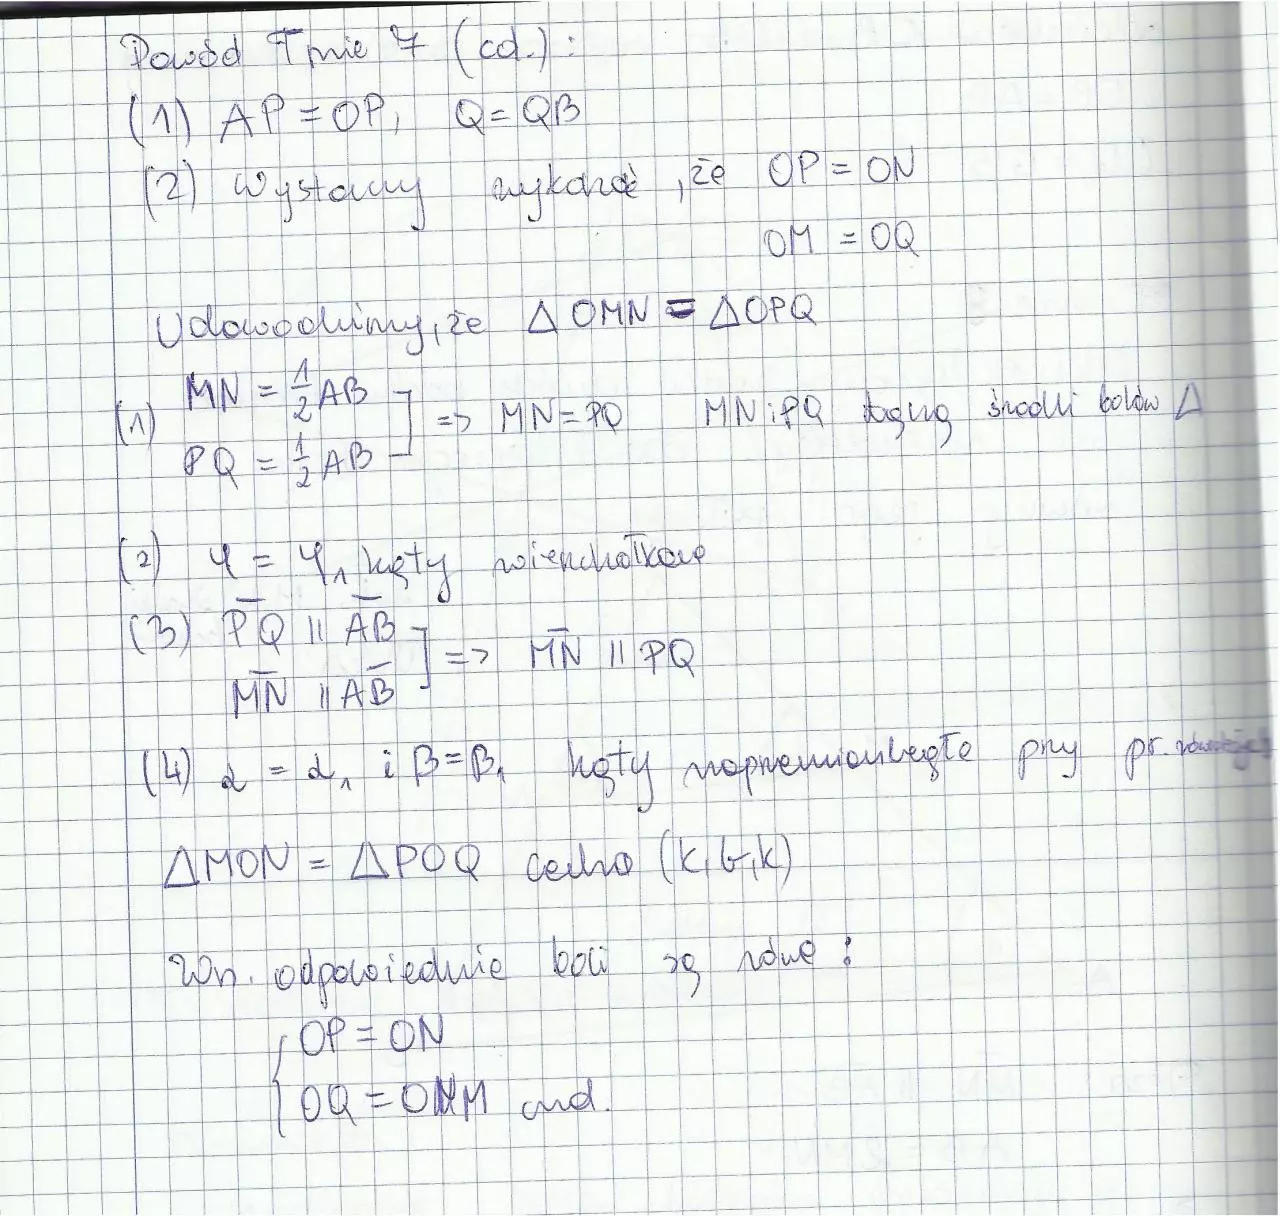 Dowód Tmie 7 (cd.):
(1) AP = OP, Q = QB
(2) Wystarczy wykazać, że OP = ON
OM = OQ
Udowodnimy, że △OMN = △OPQ
(1) MN = 1/2 AB
PQ = 1/2 AB ] => MN = PQ MN i PQ łączą środki boków △
(2) φ = φ₁ kąty wierzchołkowe
(3) P̅Q̅ || A̅B̅
M̅N̅ || AB̅ ] => M̅N̅ || PQ
(4) α = α₁ i β = β₁ kąty naprzemianległe przy pr. równoległ
△MON = △POQ cecha (k,b,k)
Wn. odpowiednie boki są równe:
{ OP = ON
OQ = OM cnd.